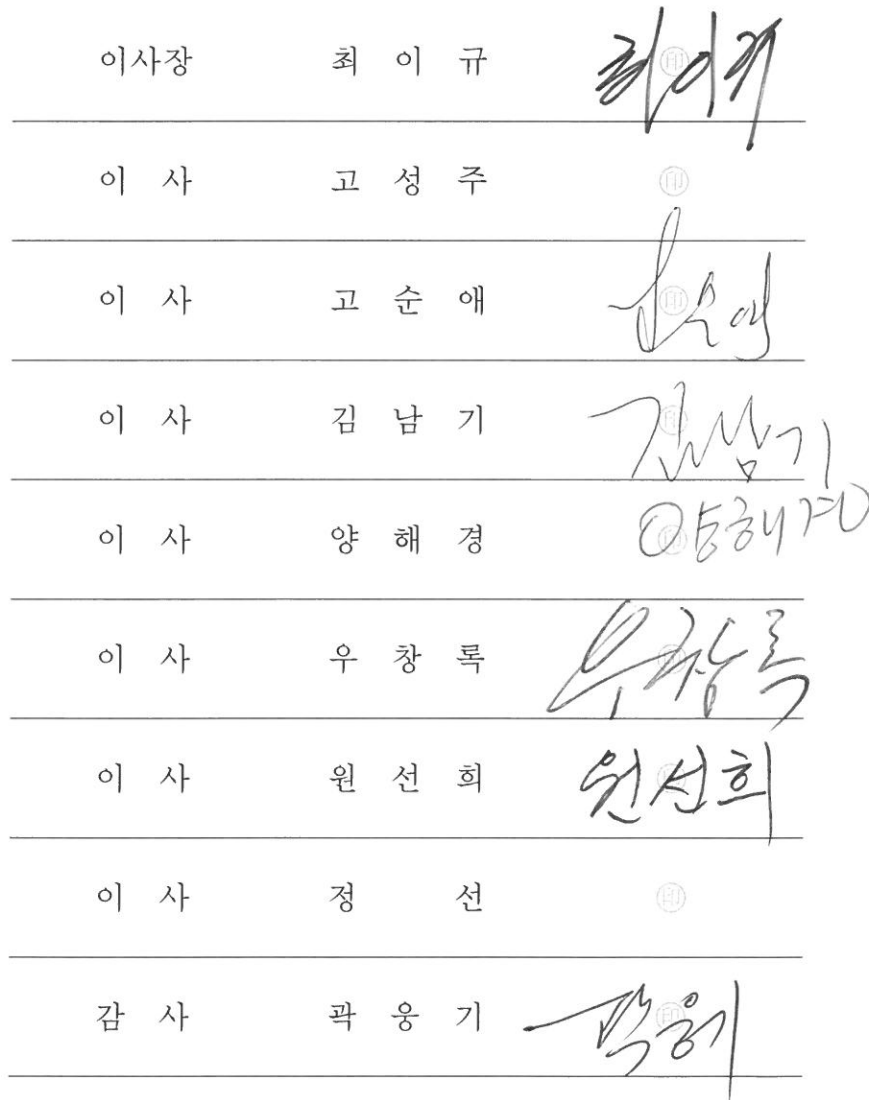 이사장 최 이 규 ㊞ 최이규
이 사 고 성 주 ㊞
이 사 고 순 애 ㊞ 고순애
이 사 김 남 기 ㊞ 김남기
이 사 양 해 경 ㊞ 양해경
이 사 우 창 록 ㊞ 우창록
이 사 원 선 희 ㊞ 원선희
이 사 정 선 ㊞
감 사 곽 웅 기 ㊞ 곽웅기